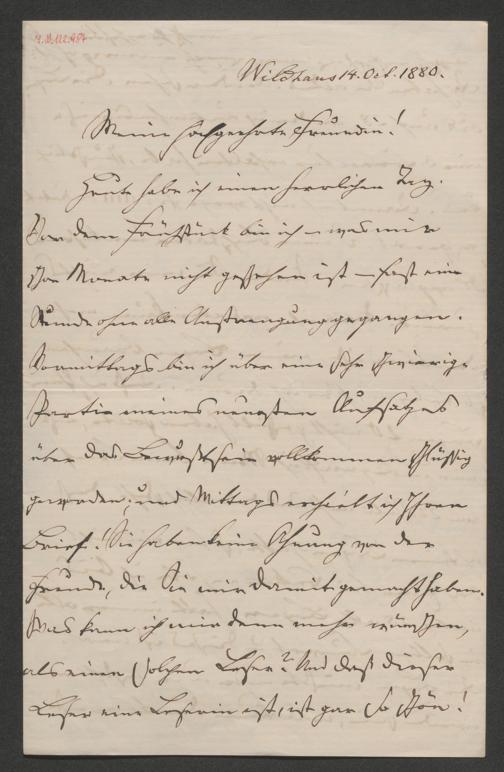 Wildhaus 14. Oct. 1880.
Meine hochgeehrte Freundin!
Heute habe ich einen herrlichen Tag.
Vor dem Frühstück bin ich – was mir
Monate nicht geschehen ist – fast eine
Stunde ohne alle Anstrengung gegangen.
Vormittags bin ich über eine sehr schwierige
Partie meines neuesten Aufsatzes
über das Bewußtsein vollkommen schlüssig
geworden; und Mittags erhielt ich Ihren
Brief! Sie haben keine Ahnung von der
Freude, die Sie mir damit gemacht haben.
Was kann ich mir denn mehr wünschen,
als einen solchen Leser? Und daß dieser
Leser eine Leserin ist, ist gar so schön!